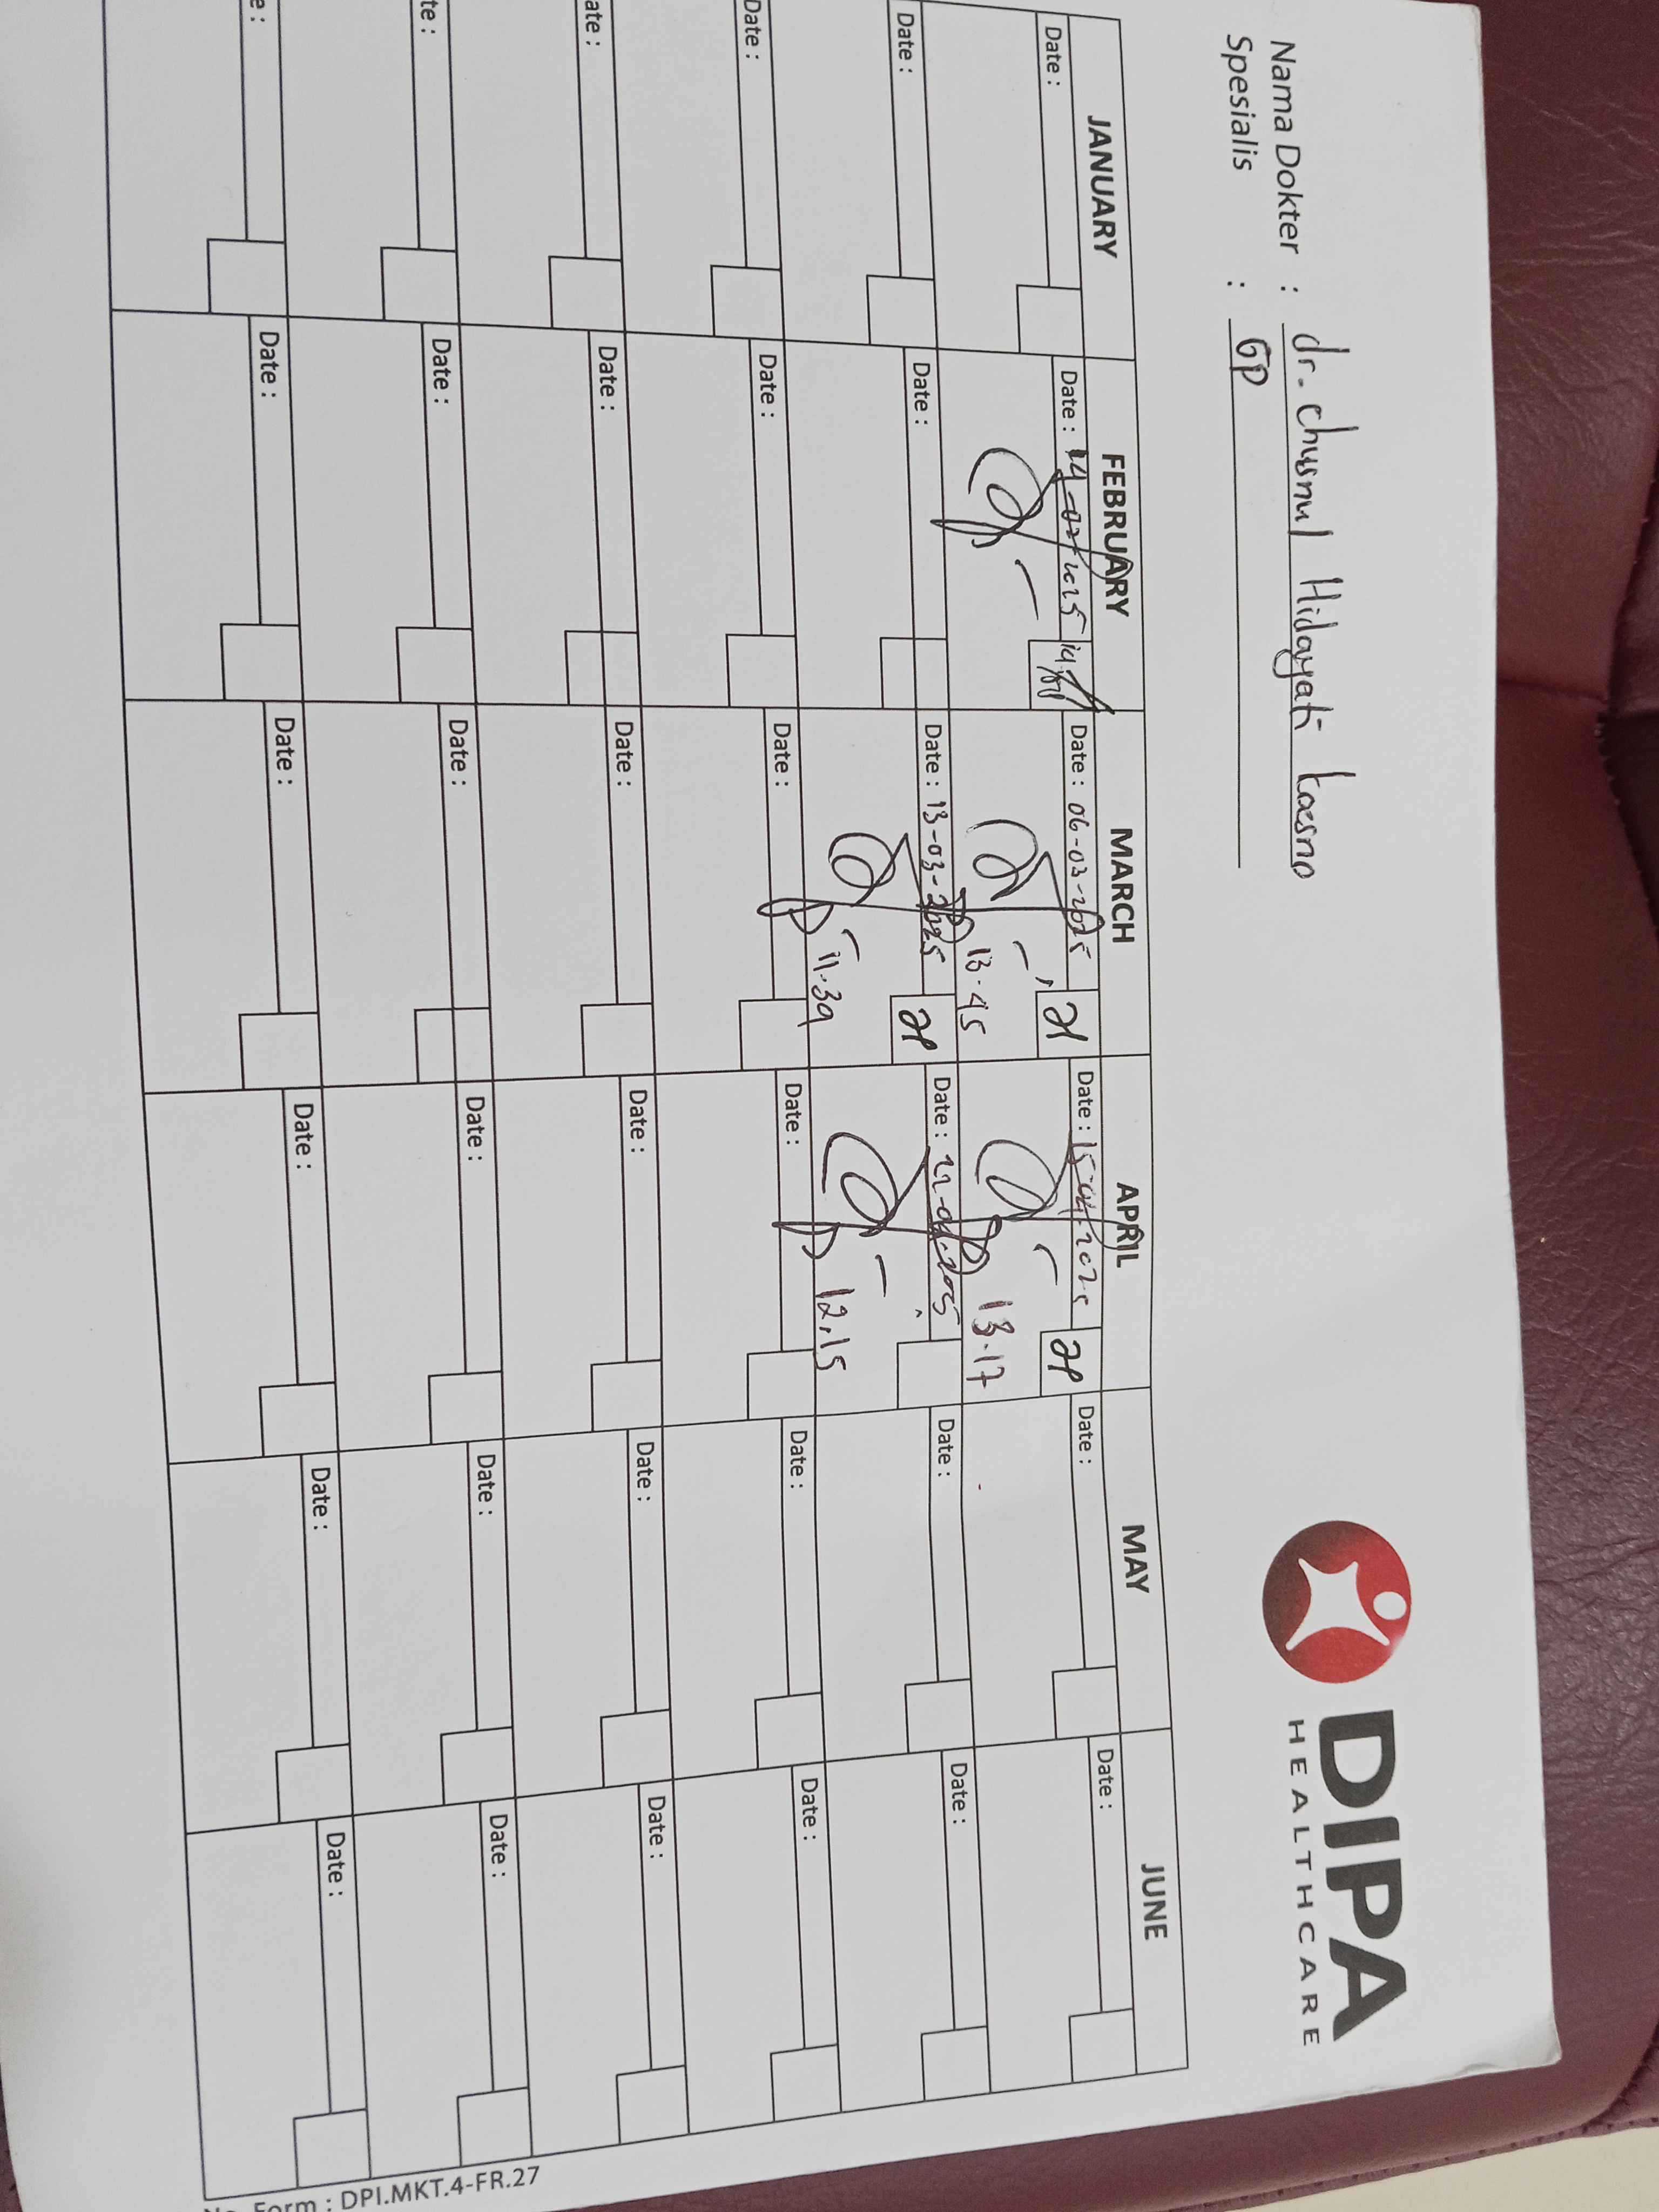 DIPA
HEALTHCARE
Nama Dokter : dr. Chusnul Hidayati Koesno
Spesialis : GP
JANUARY FEBRUARY MARCH APRIL MAY JUNE
Date : Date : 14-02-2025 Date : 06-03-2025 Date : 15-04-2025 Date : Date :
13.45 13.17
Date : Date : Date : 13-03-2025 Date : 22-04-205 Date : Date :
11.39 12.15
Date : Date : Date : Date : Date : Date :
ate : Date : Date : Date : Date : Date :
te : Date : Date : Date : Date : Date :
e : Date : Date : Date : Date : Date :
No. Form : DPI.MKT.4-FR.27